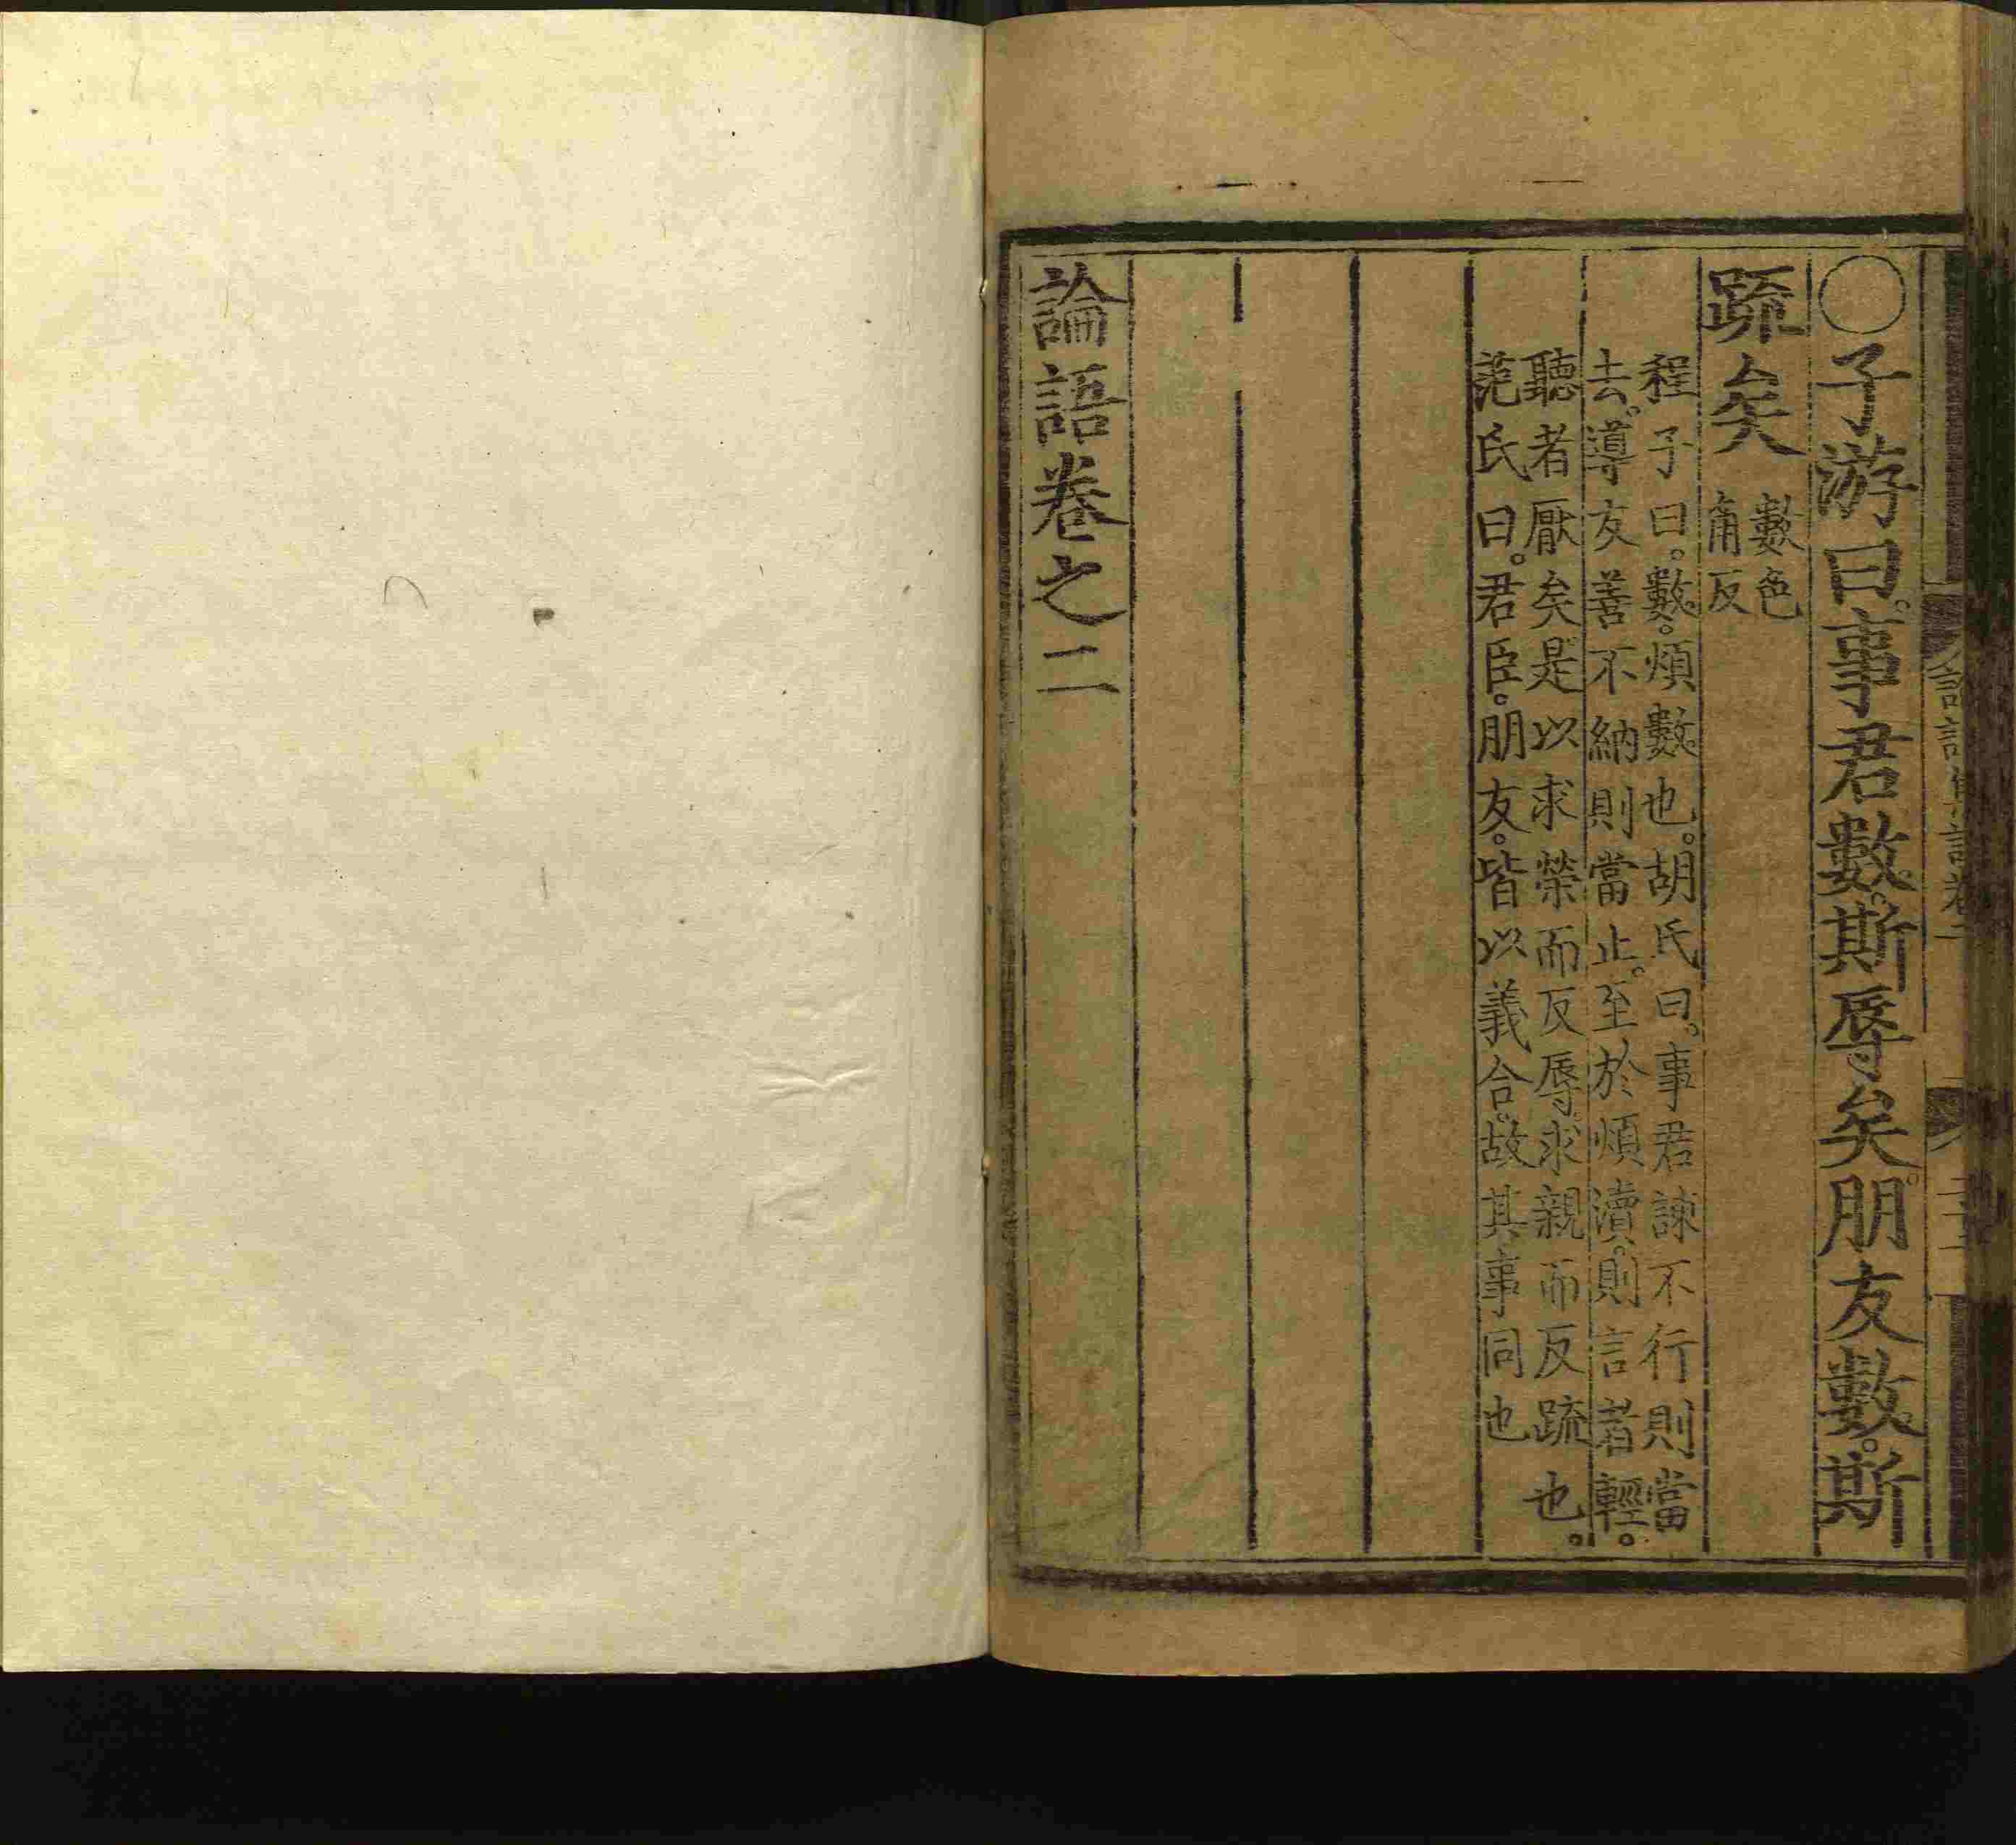 ○子游曰。事君數。斯辱矣。朋友數。斯
疏矣
數色
角反
程子曰。數。煩數也。胡氏曰。事君諫不行則當
去。導友善不納則當止。至於煩瀆。則言者輕。
聽者厭矣是以求榮而反辱。求親而反疏也。
范氏曰。君臣。朋友。皆以義合。故其事同也
論語卷之二